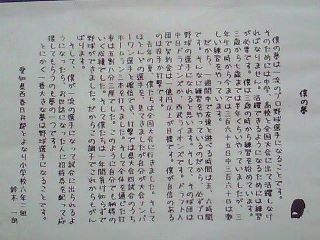 僕の夢
僕の夢は一流のプロ野球選手になることです。
そのためには中学、高校と全国大会に出て活躍しなけ
ればなりません。活躍できるようになるためには練習が
必要です。僕は三才の時から練習を始めています。
三才から七才までは半年くらいやっていましたが、三
年生の時から今までは三百六十五日中三百六十日は激
しい練習をやっています。
だから、一週間中で友達と遊べる時間は五、六時間
です。そんなに練習をやっているのだから、必ずプロ
野球の選手になれると思います。そして、その球団は
中日ドラゴンズか、西武ライオンズです。ドラフト入
団で契約金は一億円以上が目標です。僕が自信のある
のは投手か打撃です。
去年の夏、僕たちは全国大会に行きました。そして
ほとんどの投手を見てきましたが自分が大会ナンバ
ーワン選手と確信でき、打撃では県大会四試合のうち
ホームラン三本を打ちました。そして、全体を通した打
率は五割八分三厘でした。このように自分でも納得の
いく成績でした。そして、僕たちは一年間負け知らずで
野球ができました。だから、この調子でこれからもがん
ばります。
そして、僕が一流の選手になって試合に出られるよ
うになったら、お世話になった人に招待券を配って応
援してもらうのも夢の一つです。
とにかく一番大きな夢は野球選手になることです。
愛知県西春日井郡とよなり小学校六年二組
鈴木一朗